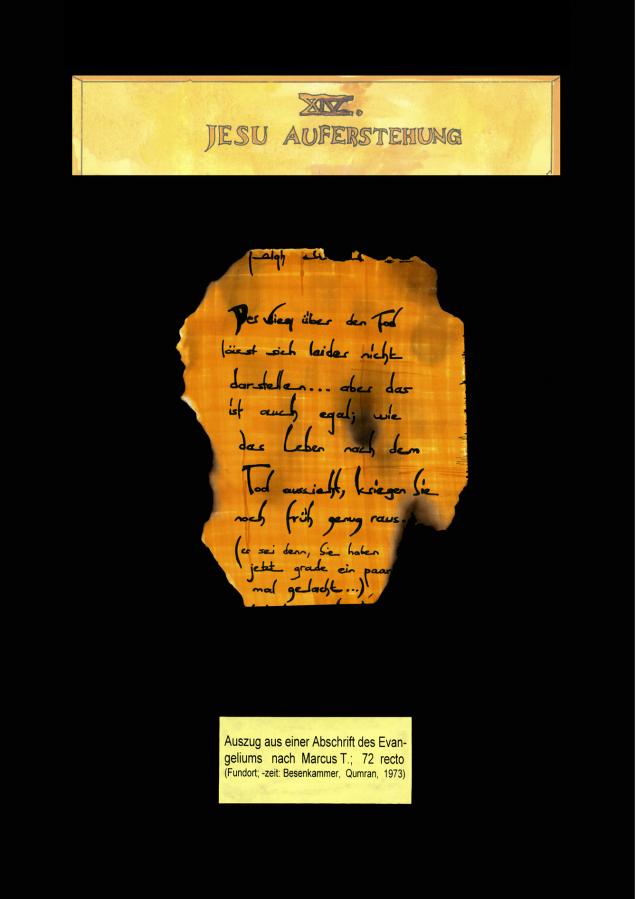 XIV.
JESU AUFERSTEHUNG
Der Sieg über den Tod
lässt sich leider nicht
darstellen... aber das
ist auch egal; wie
das Leben nach dem
Tod aussieht, kriegen Sie
noch früh genug raus.
(es sei denn, Sie haben
jetzt grade ein paar
mal gelacht...)
Auszug aus einer Abschrift des Evan-
geliums nach Marcus T.; 72 recto
(Fundort; -zeit: Besenkammer, Qumran, 1973)